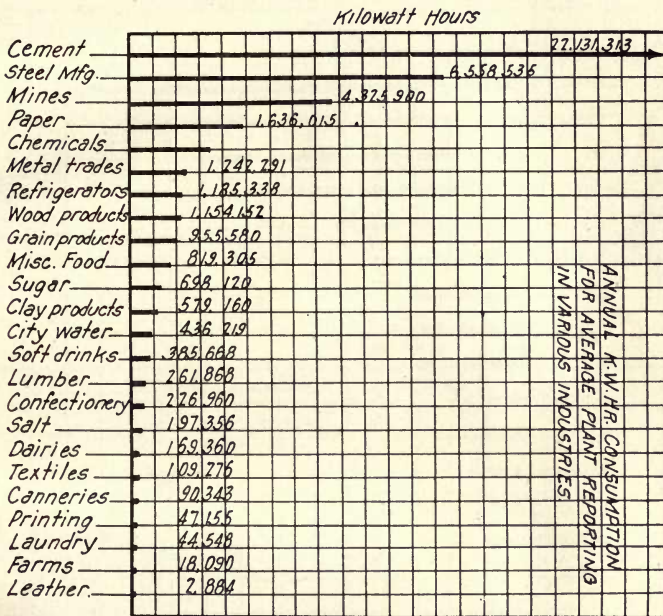 Kilowatt Hours
Cement 22,131,313
Steel Mfg. 6,558,535
Mines 4,325,900
Paper 1,636,015
Chemicals
Metal trades 1,242,291
Refrigerators 1,185,338
Wood products 1,154,152
Grain products 955,580
Misc. Food 819,305
Sugar 698,120
Clay products 579,160
City water 436,219
Soft drinks 385,668
Lumber 261,868
Confectionery 226,960
Salt 197,356
Dairies 169,360
Textiles 109,276
Canneries 90,343
Printing 47,155
Laundry 44,548
Farms 18,090
Leather 2,884
ANNUAL K.W.HR. CONSUMPTION
FOR AVERAGE PLANT REPORTING
IN VARIOUS INDUSTRIES